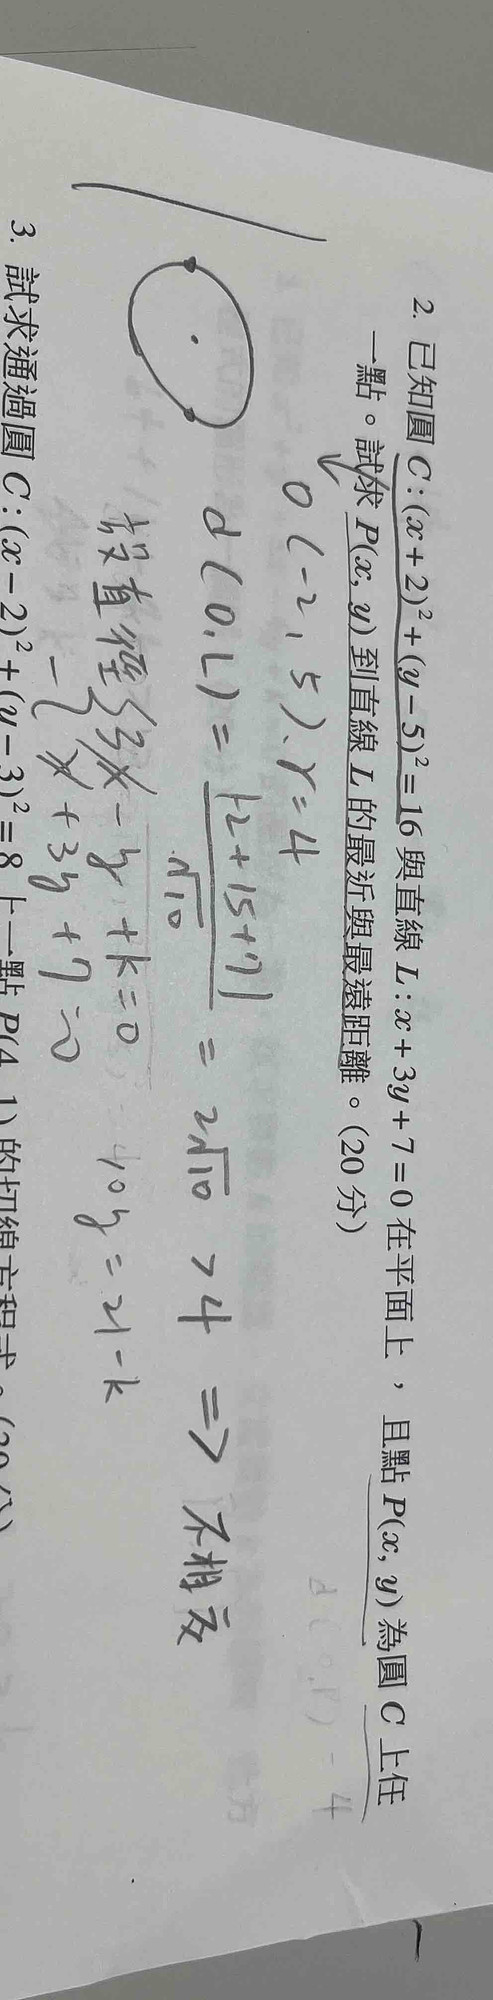 2. 已知圓 C:(x+2)²+(y−5)²=16 與直線 L:x+3y+7=0 在平面上，且點 P(x, y) 為圓 C 上任
一點。試求 P(x, y) 到直線 L 的最近與最遠距離。(20 分)
O(-2, 5), r=4
d(O.L) = |-2+15+7| / √10 = 2√10 > 4 ⇒ 不相交
設直徑 3x - y + k=0
x + 3y + 7 =0
10y = 21-k
3. 試求通過圓 C:(x−2)²+(y−3)²=8 上一點 P(4, 1) 的切線方程式。(20 分)